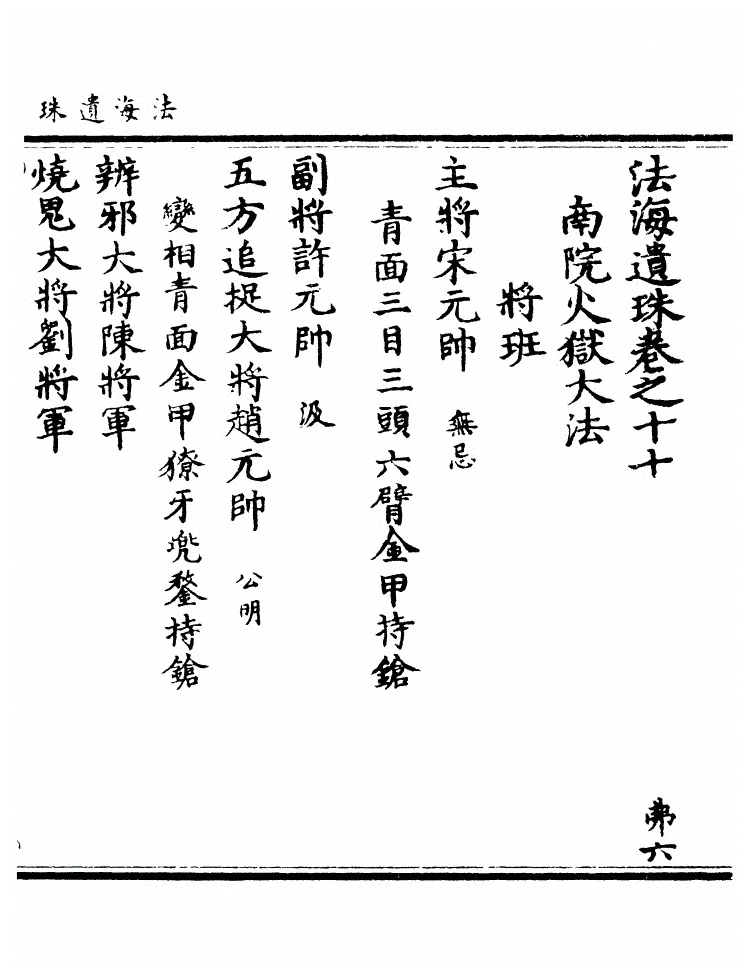 法海遺珠
法海遺珠卷之十十 弗六
南院火獄大法
將班
主將宋元帥 無忌
青面三目三頭六臂金甲持鎗
副將許元帥 汲
五方追捉大將趙元帥 公明
變相青面金甲獠牙兜鍪持鎗
辨邪大將陳將軍
燒鬼大將劉將軍